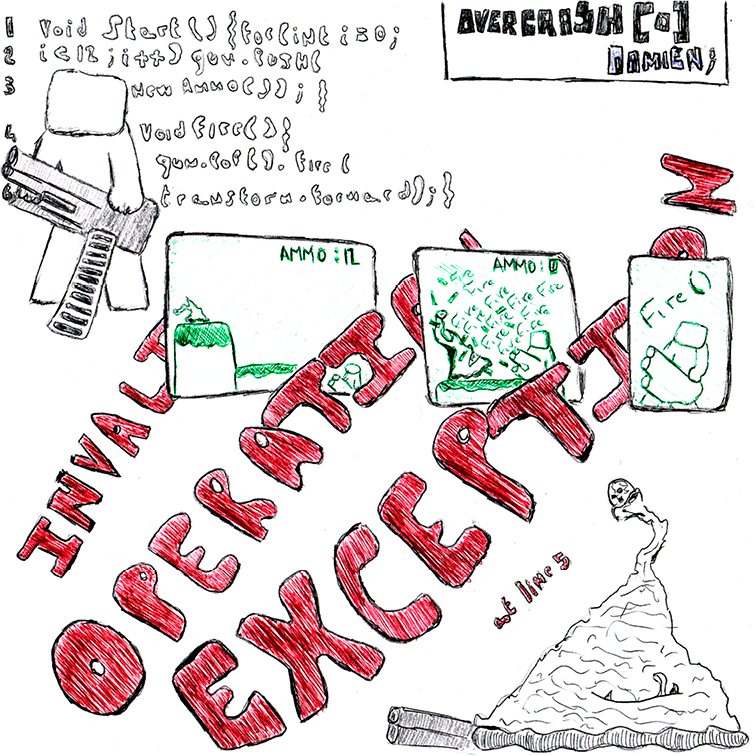 1 Void Start() {for(int i=0;
2 i<12;i++) gun.Push(
3 new Ammo()); }
4 Void Fire(){
gun.Pop().Fire(
6 transform.forward);}
OVERCRASH [0]
DAMIEN;
AMMO:12
AMMO:0
Fire Fire
Fire Fire Fire
Fire Fire Fire
Fire Fire
Fire
Fire()
INVALID
OPERATION
EXCEPTION
at line 5